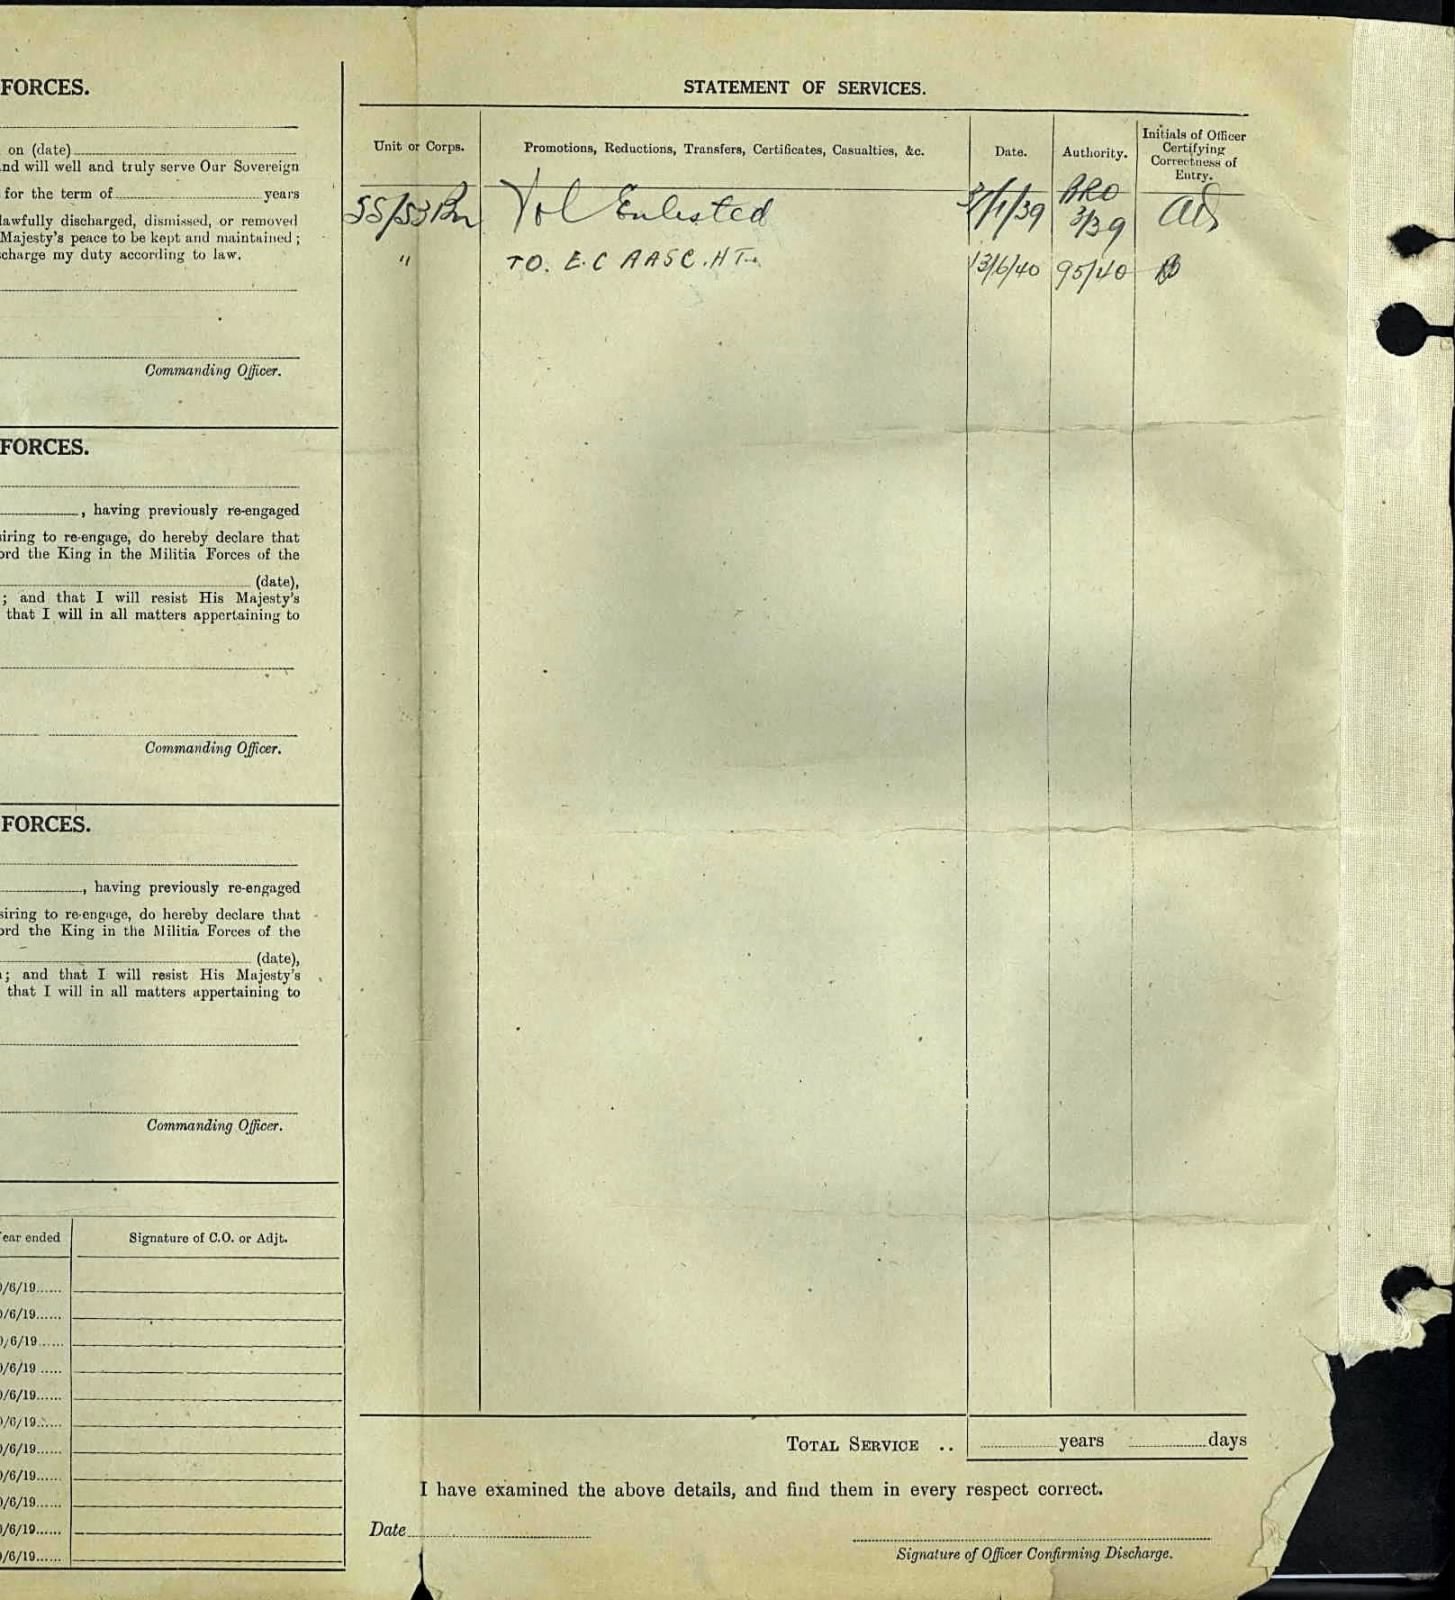 FORCES.
on (date)
nd will well and truly serve Our Sovereign
for the term of years
lawfully discharged, dismissed, or removed
Majesty's peace to be kept and maintained ;
scharge my duty according to law.
Commanding Officer.
FORCES.
, having previously re-engaged
iring to re-engage, do hereby declare that
ord the King in the Militia Forces of the
(date),
; and that I will resist His Majesty's
that I will in all matters appertaining to
Commanding Officer.
FORCES.
, having previously re-engaged
siring to re-engage, do hereby declare that
ord the King in the Militia Forces of the
(date),
; and that I will resist His Majesty's
that I will in all matters appertaining to
Commanding Officer.
ear ended Signature of C.O. or Adjt.
/6/19......
/6/19......
/6/19......
/6/19.....
/6/19......
/6/19......
/6/19......
/6/19......
/6/19......
/6/19......
/6/19......
STATEMENT OF SERVICES.
Unit or Corps. Promotions, Reductions, Transfers, Certificates, Casualties, &c. Date. Authority. Initials of Officer Certifying Correctness of Entry.
55/53 Bn Vol Enlisted /1/39 ARO 3/39
" TO. E.C AASC. HT 13/6/40 95/40
TOTAL SERVICE .. years days
I have examined the above details, and find them in every respect correct.
Date
Signature of Officer Confirming Discharge.